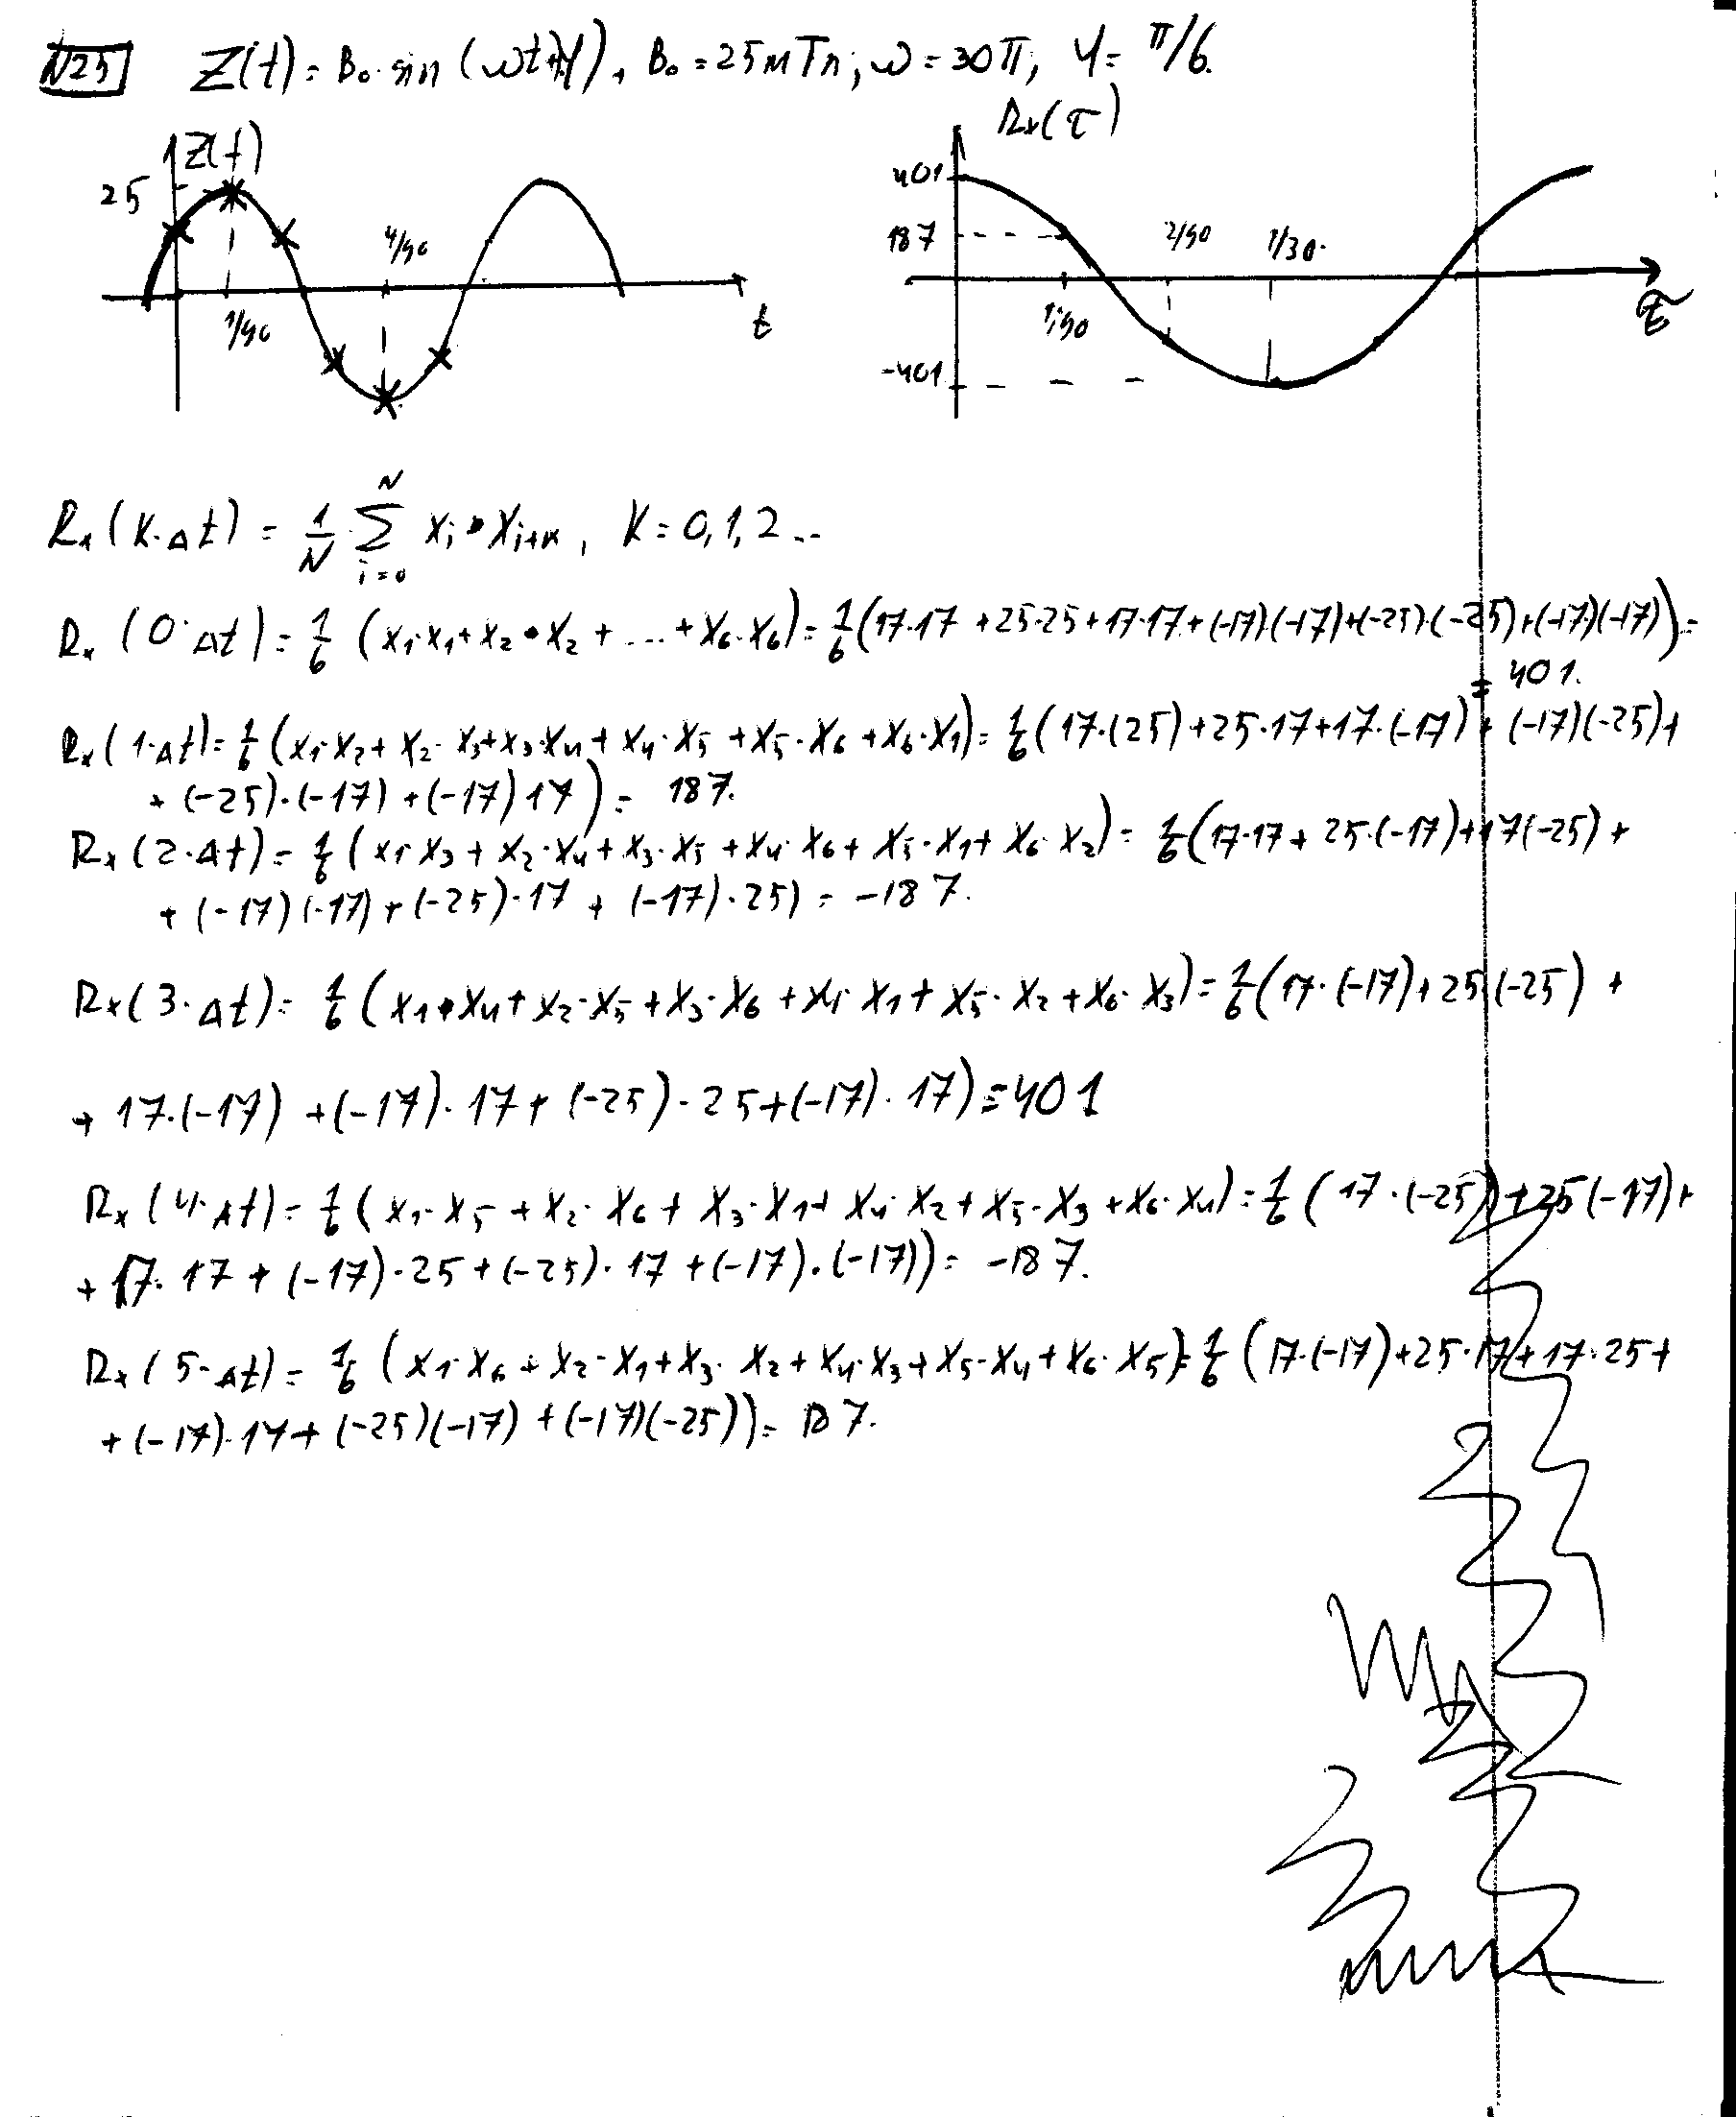 N25 Z(t) = B₀·sin(ωt+φ), B₀ = 25 мТл; ω = 30π, φ = π/6.
Z(t)
25
4/90
1/90
t
Rx(τ)
401
187
2/90
1/30
1/90
-401
τ
Rx(K·Δt) = 1/N Σ(i=0..N) Xi • Xi+K, K = 0,1,2...
Rx(0·Δt) = 1/6 (X1·X1+X2•X2 + ... + X6·X6) = 1/6(17·17 + 25·25+17·17+(-17)·(-17)+(-25)·(-25)+(-17)(-17)) =
= 401.
Rx(1·Δt) = 1/6 (X1·X2+X2·X3+X3·X4+X4·X5+X5·X6+X6·X1) = 1/6(17·(25)+25·17+17·(-17)+(-17)(-25)+
+ (-25)·(-17)+(-17)17) = 187.
Rx(2·Δt) = 1/6 (X1·X3+X2·X4+X3·X5+X4·X6+X5·X1+X6·X2) = 1/6(17·17+25·(-17)+17(-25)+
+ (-17)(-17)+(-25)·17+(-17)·25) = -187.
Rx(3·Δt) = 1/6 (X1•X4+X2·X5+X3·X6+X4·X1+X5·X2+X6·X3) = 1/6(17·(-17)+25(-25)+
+ 17·(-17)+(-17)·17+(-25)·25+(-17)·17) = 401
Rx(4·Δt) = 1/6 (X1·X5+X2·X6+X3·X1+X4·X2+X5·X3+X6·X4) = 1/6(17·(-25)+25(-17)+
+ 17·17+(-17)·25+(-25)·17+(-17)·(-17)) = -187.
Rx(5·Δt) = 1/6 (X1·X6+X2·X1+X3·X2+X4·X3+X5·X4+X6·X5) = 1/6(17·(-17)+25·17+17·25+
+ (-17)·17+(-25)(-17)+(-17)(-25)) = 187.